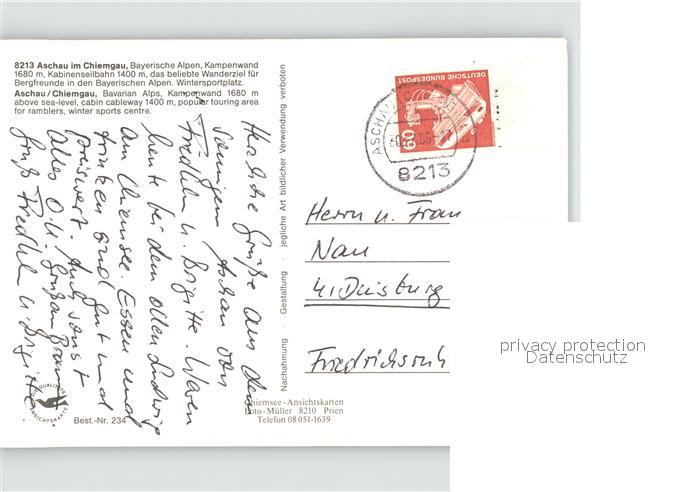 8213 Aschau im Chiemgau, Bayerische Alpen, Kampenwand
1680 m, Kabinenseilbahn 1400 m, das beliebte Wanderziel für
Bergfreunde in den Bayerischen Alpen. Wintersportplatz.
Aschau/Chiemgau, Bavarian Alps, Kampenwand 1680 m
above sea-level, cabin cableway 1400 m, popular touring area
for ramblers, winter sports centre.
Herzliche Grüße aus dem
sonnigen Aschau von
Friedhelm u. Brigitte. Waren
heute bei dem ollen Ludwig
am Chiemsee. Essen und
trinken sind gut und
preiswert. Auch sonst
alles O.K.
Gruß Friedhelm u. Brigitte.
Nachahmung · Gestaltung · jegliche Art bildlicher Verwendung verboten
DEUTSCHE BUNDESPOST
60
ASCHAU
8213
Herrn u. Frau
Nau
41 Duisburg
Friedrichsruh
privacy protection
Datenschutz
QUALITÄTS
ANSICHTSKARTE
Best.-Nr. 234
Chiemsee-Ansichtskarten
Foto-Müller 8210 Prien
Telefon 08051-1639